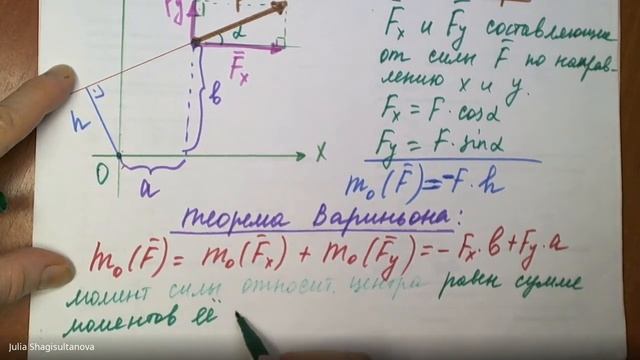 F̅y
α
F̅x
h
b
O
a
x
F̅x и F̅y составляющие
от силы F̅ по направ-
лению x и y.
Fx = F · cosα
Fy = F · sinα
m₀(F̅) = -F · h
теорема Вариньона:
m₀(F̅) = m₀(F̅x) + m₀(F̅y) = - Fx · b + Fy · a
момент силы относит. центра равен сумме
моментов её
Julia Shagisultanova